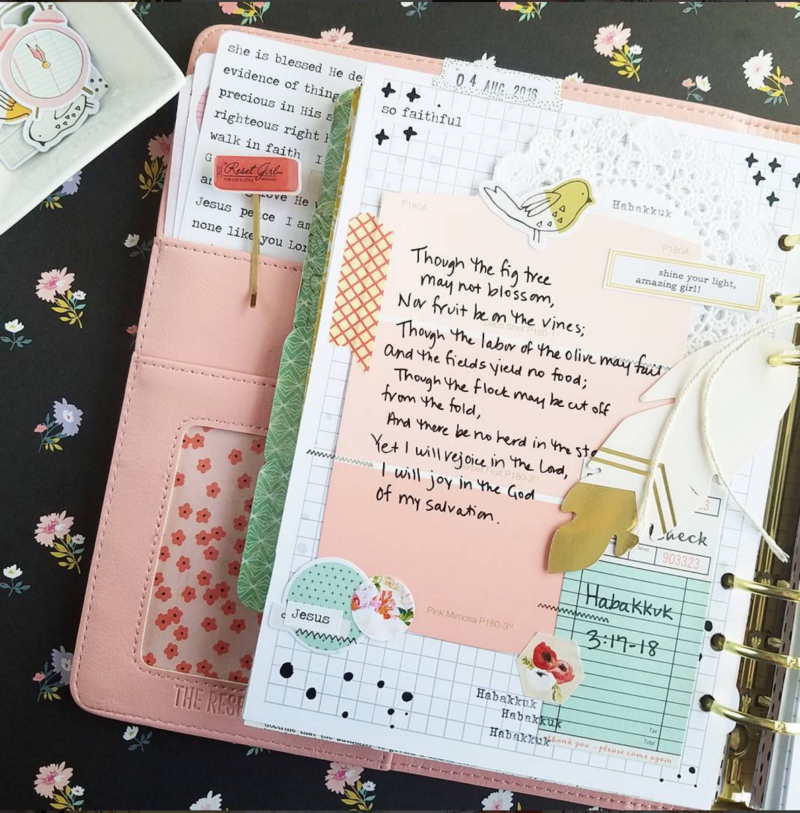 she is blessed He de
evidence of thing
precious in His s
righteous right h
walk in faith I
Reset Girl
Jesus peace I am
none like you Lor
THE RESE
04 AUG. 2016
so faithful
P180A
Habakkuk
P180A
shine your light,
amazing girl!!
Though the fig tree
may not blossom,
Nor fruit be on the vines;
Though the labor of the olive may fail
And the fields yield no food;
Though the flock may be cut off
from the fold,
And there be no herd in the sta
Yet I will rejoice in the Lord,
I will joy in the God
of my salvation.
Pink Mimosa P180-3
Jesus
Check
903323
Habakkuk
3:17-18
Tax
Total
thank you - please come again
Habakkuk
Habakkuk
Habakkuk